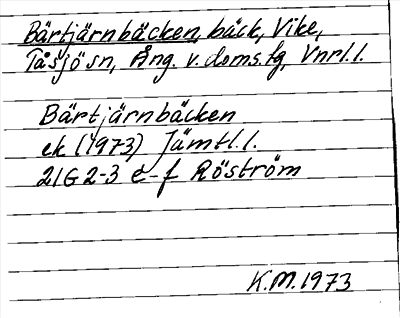 Bärtjärnbäcken, bäck, Vike,
Tåsjö sn, Ång. v. doms.fg, Vnrl. l.
Bärtjärnbäcken
ek (1973) Jämtl. l.
21G 2-3 e-f Röström
K.M. 1973